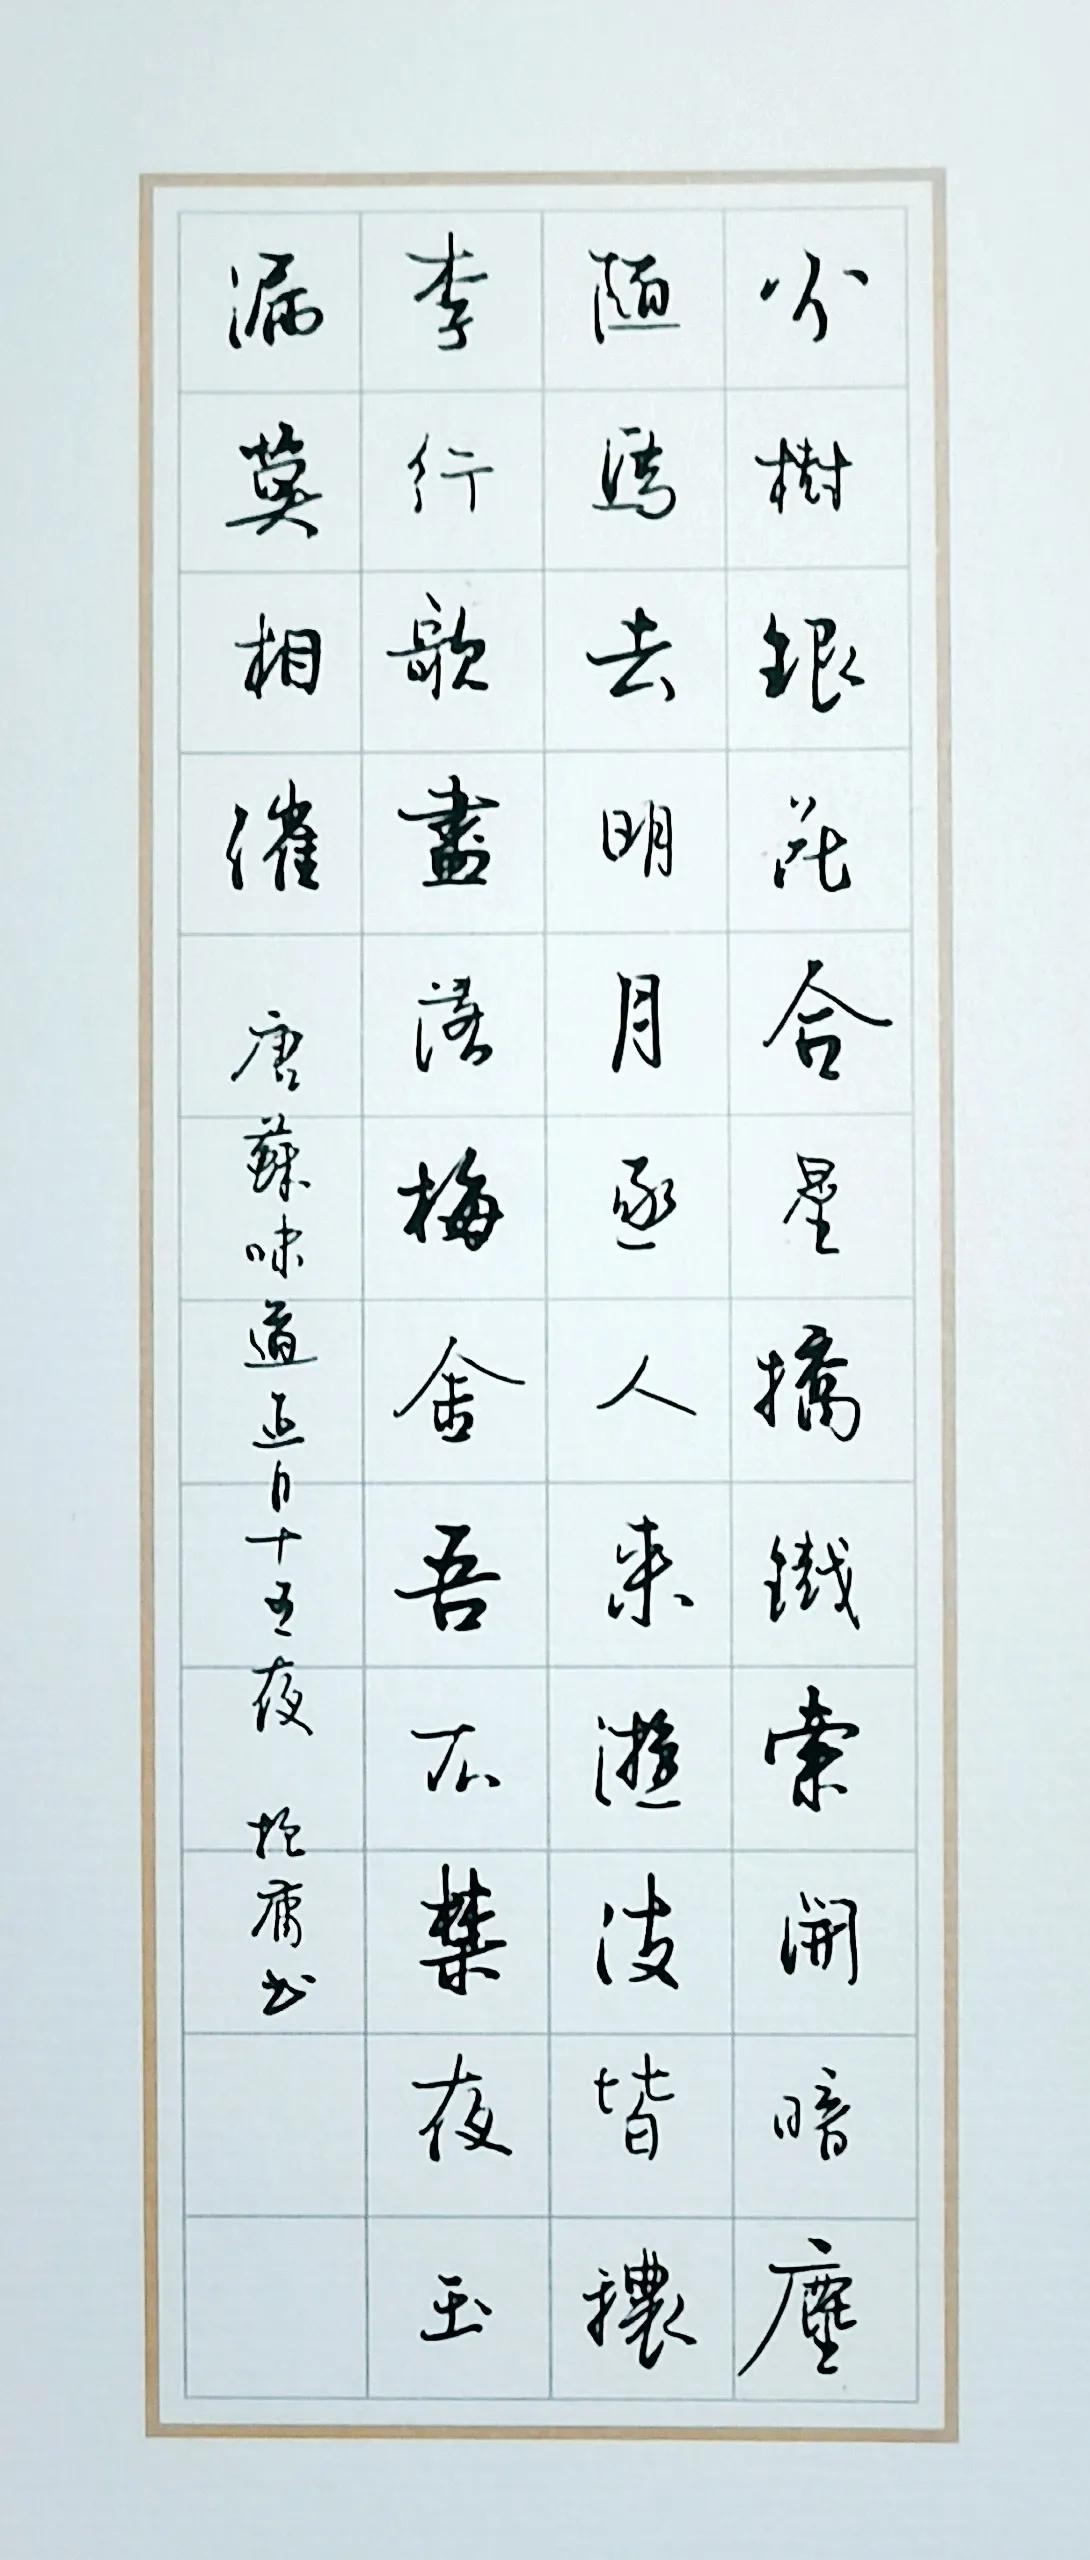 火樹銀花合星橋鐵索開暗塵
隨馬去明月逐人來遊伎皆穠
李行歌盡落梅金吾不禁夜玉
漏莫相催 唐蘇味道正月十五夜 抱庸书